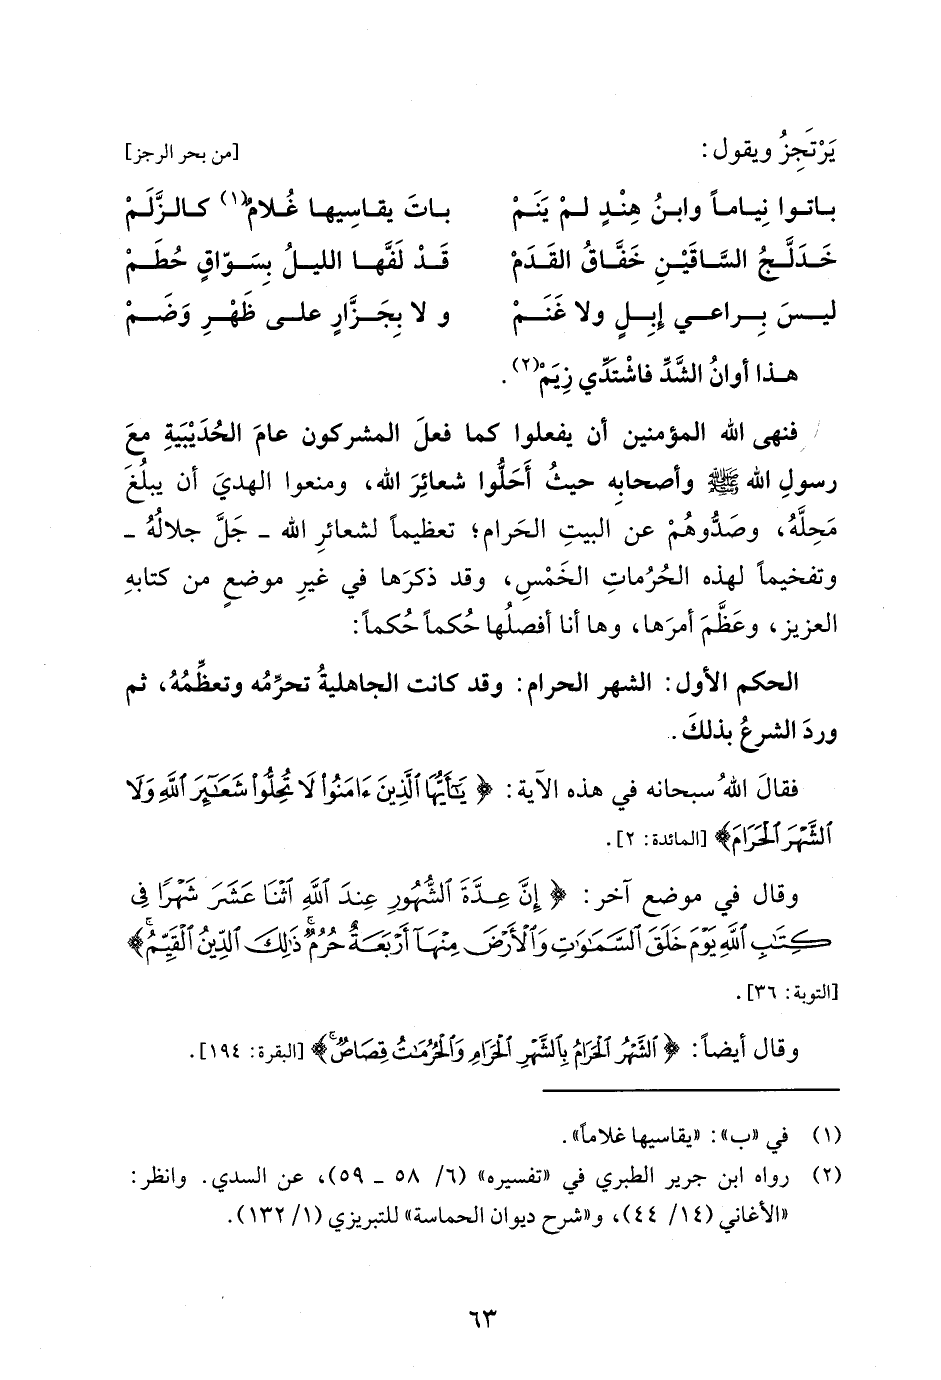 يَرْتَجِزُ ويقول: [من بحر الرجز]
بـاتـوا نِيـامـاً وابـنُ هِنْـدٍ لـمْ يَنَـمْ بـاتَ يقـاسِيهـا غُـلامٌ(١) كـالـزَّلَـمْ
خَـدَلَّـجُ السَّـاقَيْـنِ خَفَّـاقُ القَـدَمْ قَـدْ لَفَّهـا الليـلُ بِسَـوّاقٍ حُطَـمْ
ليـسَ بِـراعـي إِبِـلٍ ولا غَنَـمْ و لا بِجَـزَّارٍ علـى ظَهْـرِ وَضَـمْ
هـذا أوانُ الشَّدِّ فاشْتَدِّي زِيَمْ(٢).
فنهى الله المؤمنين أن يفعلوا كما فعلَ المشركون عامَ الحُدَيْبَيَةِ معَ
رسولِ الله ﷺ وأصحابِه حيثُ أَحَلُّوا شعائِرَ الله، ومنعوا الهديَ أن يبلُغَ
مَحِلَّهُ، وصَدُّوهُمْ عن البيتِ الحَرام؛ تعظيماً لشعائرِ الله ـ جَلَّ جلالُهُ ـ
وتفخيماً لهذه الحُرُماتِ الخَمْسِ، وقد ذكرَها في غيرِ موضعٍ من كتابهِ
العزيز، وعَظَّمَ أمرَها، وها أنا أفصلُها حُكماً حُكماً:
الحكم الأول: الشهر الحرام: وقد كانت الجاهليةُ تحرِّمُه وتعظِّمُهُ، ثم
وردَ الشرعُ بذلكَ.
فقالَ اللهُ سبحانه في هذه الآية: ﴿يَٰٓأَيُّهَا ٱلَّذِينَ ءَامَنُوا۟ لَا تُحِلُّوا۟ شَعَٰٓئِرَ ٱللَّهِ وَلَا
ٱلشَّهْرَ ٱلْحَرَامَ﴾ [المائدة: ٢].
وقال في موضع آخر: ﴿إِنَّ عِدَّةَ ٱلشُّهُورِ عِندَ ٱللَّهِ ٱثْنَا عَشَرَ شَهْرًا فِى
كِتَٰبِ ٱللَّهِ يَوْمَ خَلَقَ ٱلسَّمَٰوَٰتِ وَٱلْأَرْضَ مِنْهَآ أَرْبَعَةٌ حُرُمٌۚ ذَٰلِكَ ٱلدِّينُ ٱلْقَيِّمُۚ﴾
[التوبة: ٣٦].
وقال أيضاً: ﴿ٱلشَّهْرُ ٱلْحَرَامُ بِٱلشَّهْرِ ٱلْحَرَامِ وَٱلْحُرُمَٰتُ قِصَاصٌۚ﴾ [البقرة: ١٩٤].
(١) في «ب»: «يقاسيها غلاماً».
(٢) رواه ابن جرير الطبري في «تفسيره» (٦/ ٥٨ ـ ٥٩)، عن السدي. وانظر:
«الأغاني (١٤/ ٤٤)، و«شرح ديوان الحماسة» للتبريزي (١/ ١٣٢).
٦٣